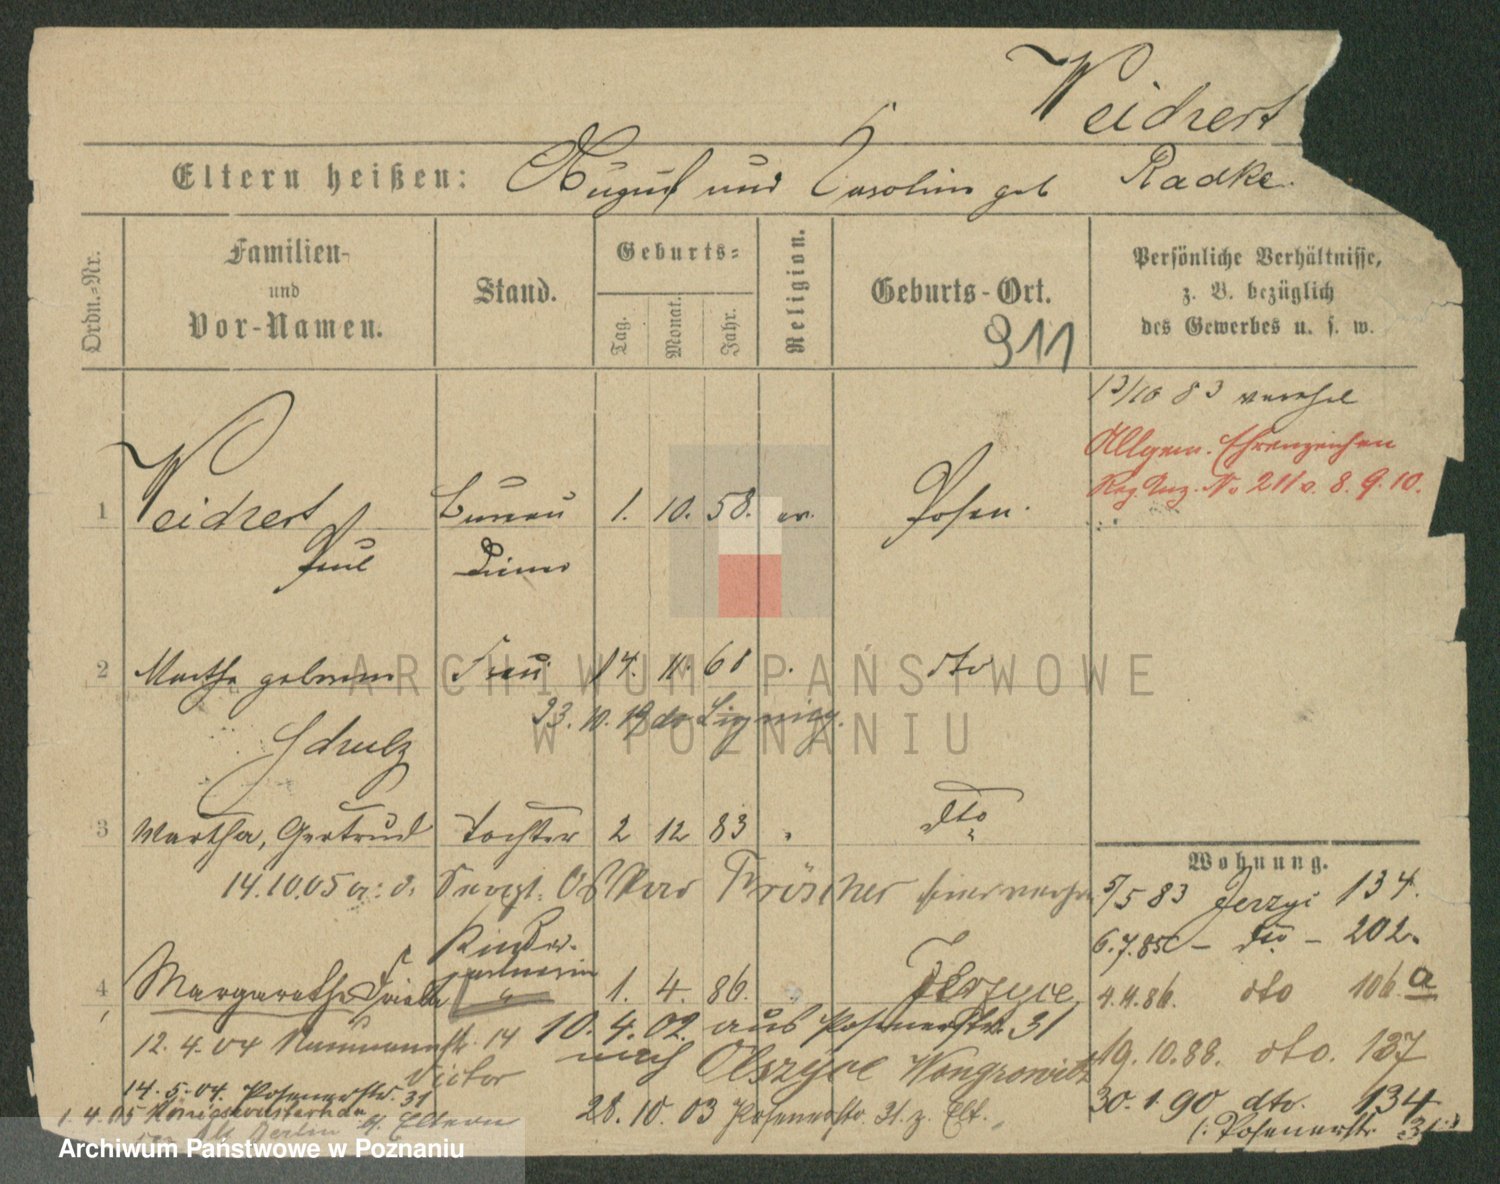 Weichert
Eltern heißen: August und Carolin geb Radke.
Ordn.-Nr.
Familien-
und
Vor-Namen.
Stand.
Geburts-
Tag.
Monat.
Jahr.
Religion.
Geburts-Ort.
911
Persönliche Verhältnisse,
z. B. bezüglich
des Gewerbes u. s. w.
13/10 83 verehel
Allgem. Ehrenzeichen
Reg. Anz. No 211 v. 8. 9. 10.
1 Weichert Bureau 1. 10. 58. ev. Posen.
Paul Diener
2 Martha geborene Frau 14. 11. 60 dto
23. 10. 19
Schulz
3 Martha, Gertrud Tochter 2 12 83 " dto
14.10.05 Sergt. Oskar Tröscher
Kinder-
gärtnerin
4 Margarethe Frieda " 1. 4. 86. Jerzyce
10. 4. 02. aus Posenerstr. 31
12. 4. 04 Naumannstr. 14
nach Olszyce Wongrowitz
Victor
14. 5. 04. Posenerstr. 31
28. 10. 03 Posenerstr. 31. z. Elt.
1. 4. 05 Königswusterhau
Berlin Eltern
Wohnung.
5/5 83 Jerzyi 134.
6. 7. 85 — dto — 202.
4. 4. 86. dto 106 a
19. 10. 88. dto. 137
30. 1 90 dto. 134
(: Posenerstr. 31 :)
ARCHIWUM PAŃSTWOWE
W POZNANIU
Archiwum Państwowe w Poznaniu